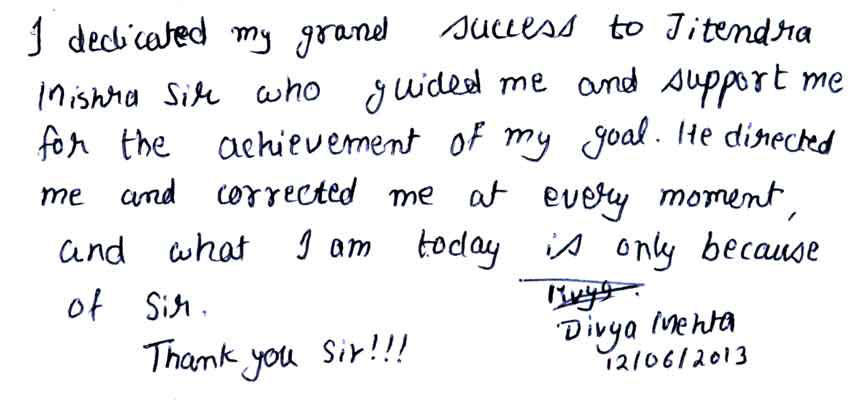 I dedicated my grand success to Jitendra
Mishra Sir who guided me and support me
for the achievement of my goal. He directed
me and corrected me at every moment,
and what I am today is only because
of Sir.
Divya
Thank you Sir!!!
Divya Mehta
12/06/2013